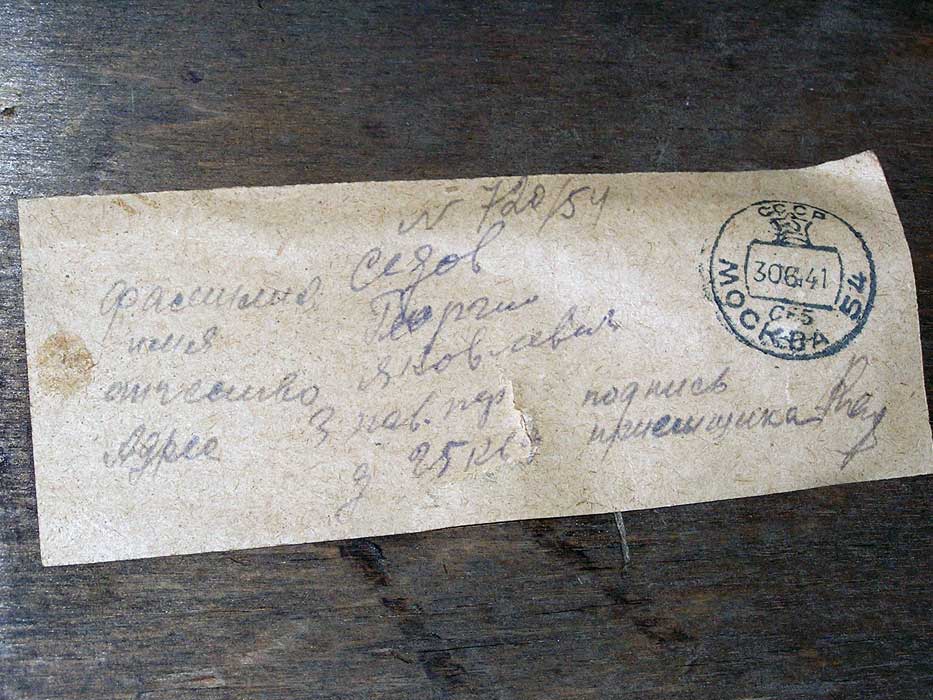 N 720/54
фамилия Седов
имя Георгий
отчество Яковлевич
Адрес 3 пав. пр
д 25 кв
подпись
приемщика
СССР
30 6 41
МОСКВА 54